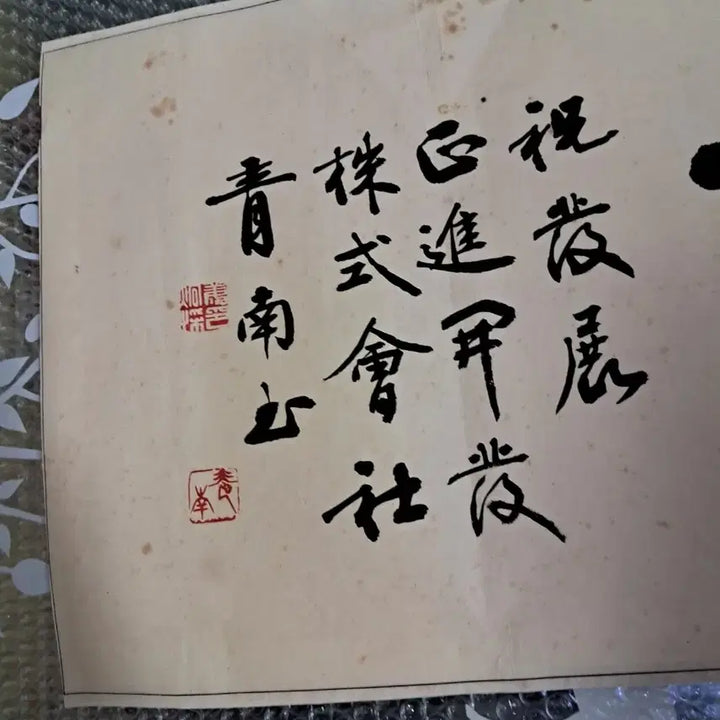 祝發展
正進開發
株式會社
青南书
青南